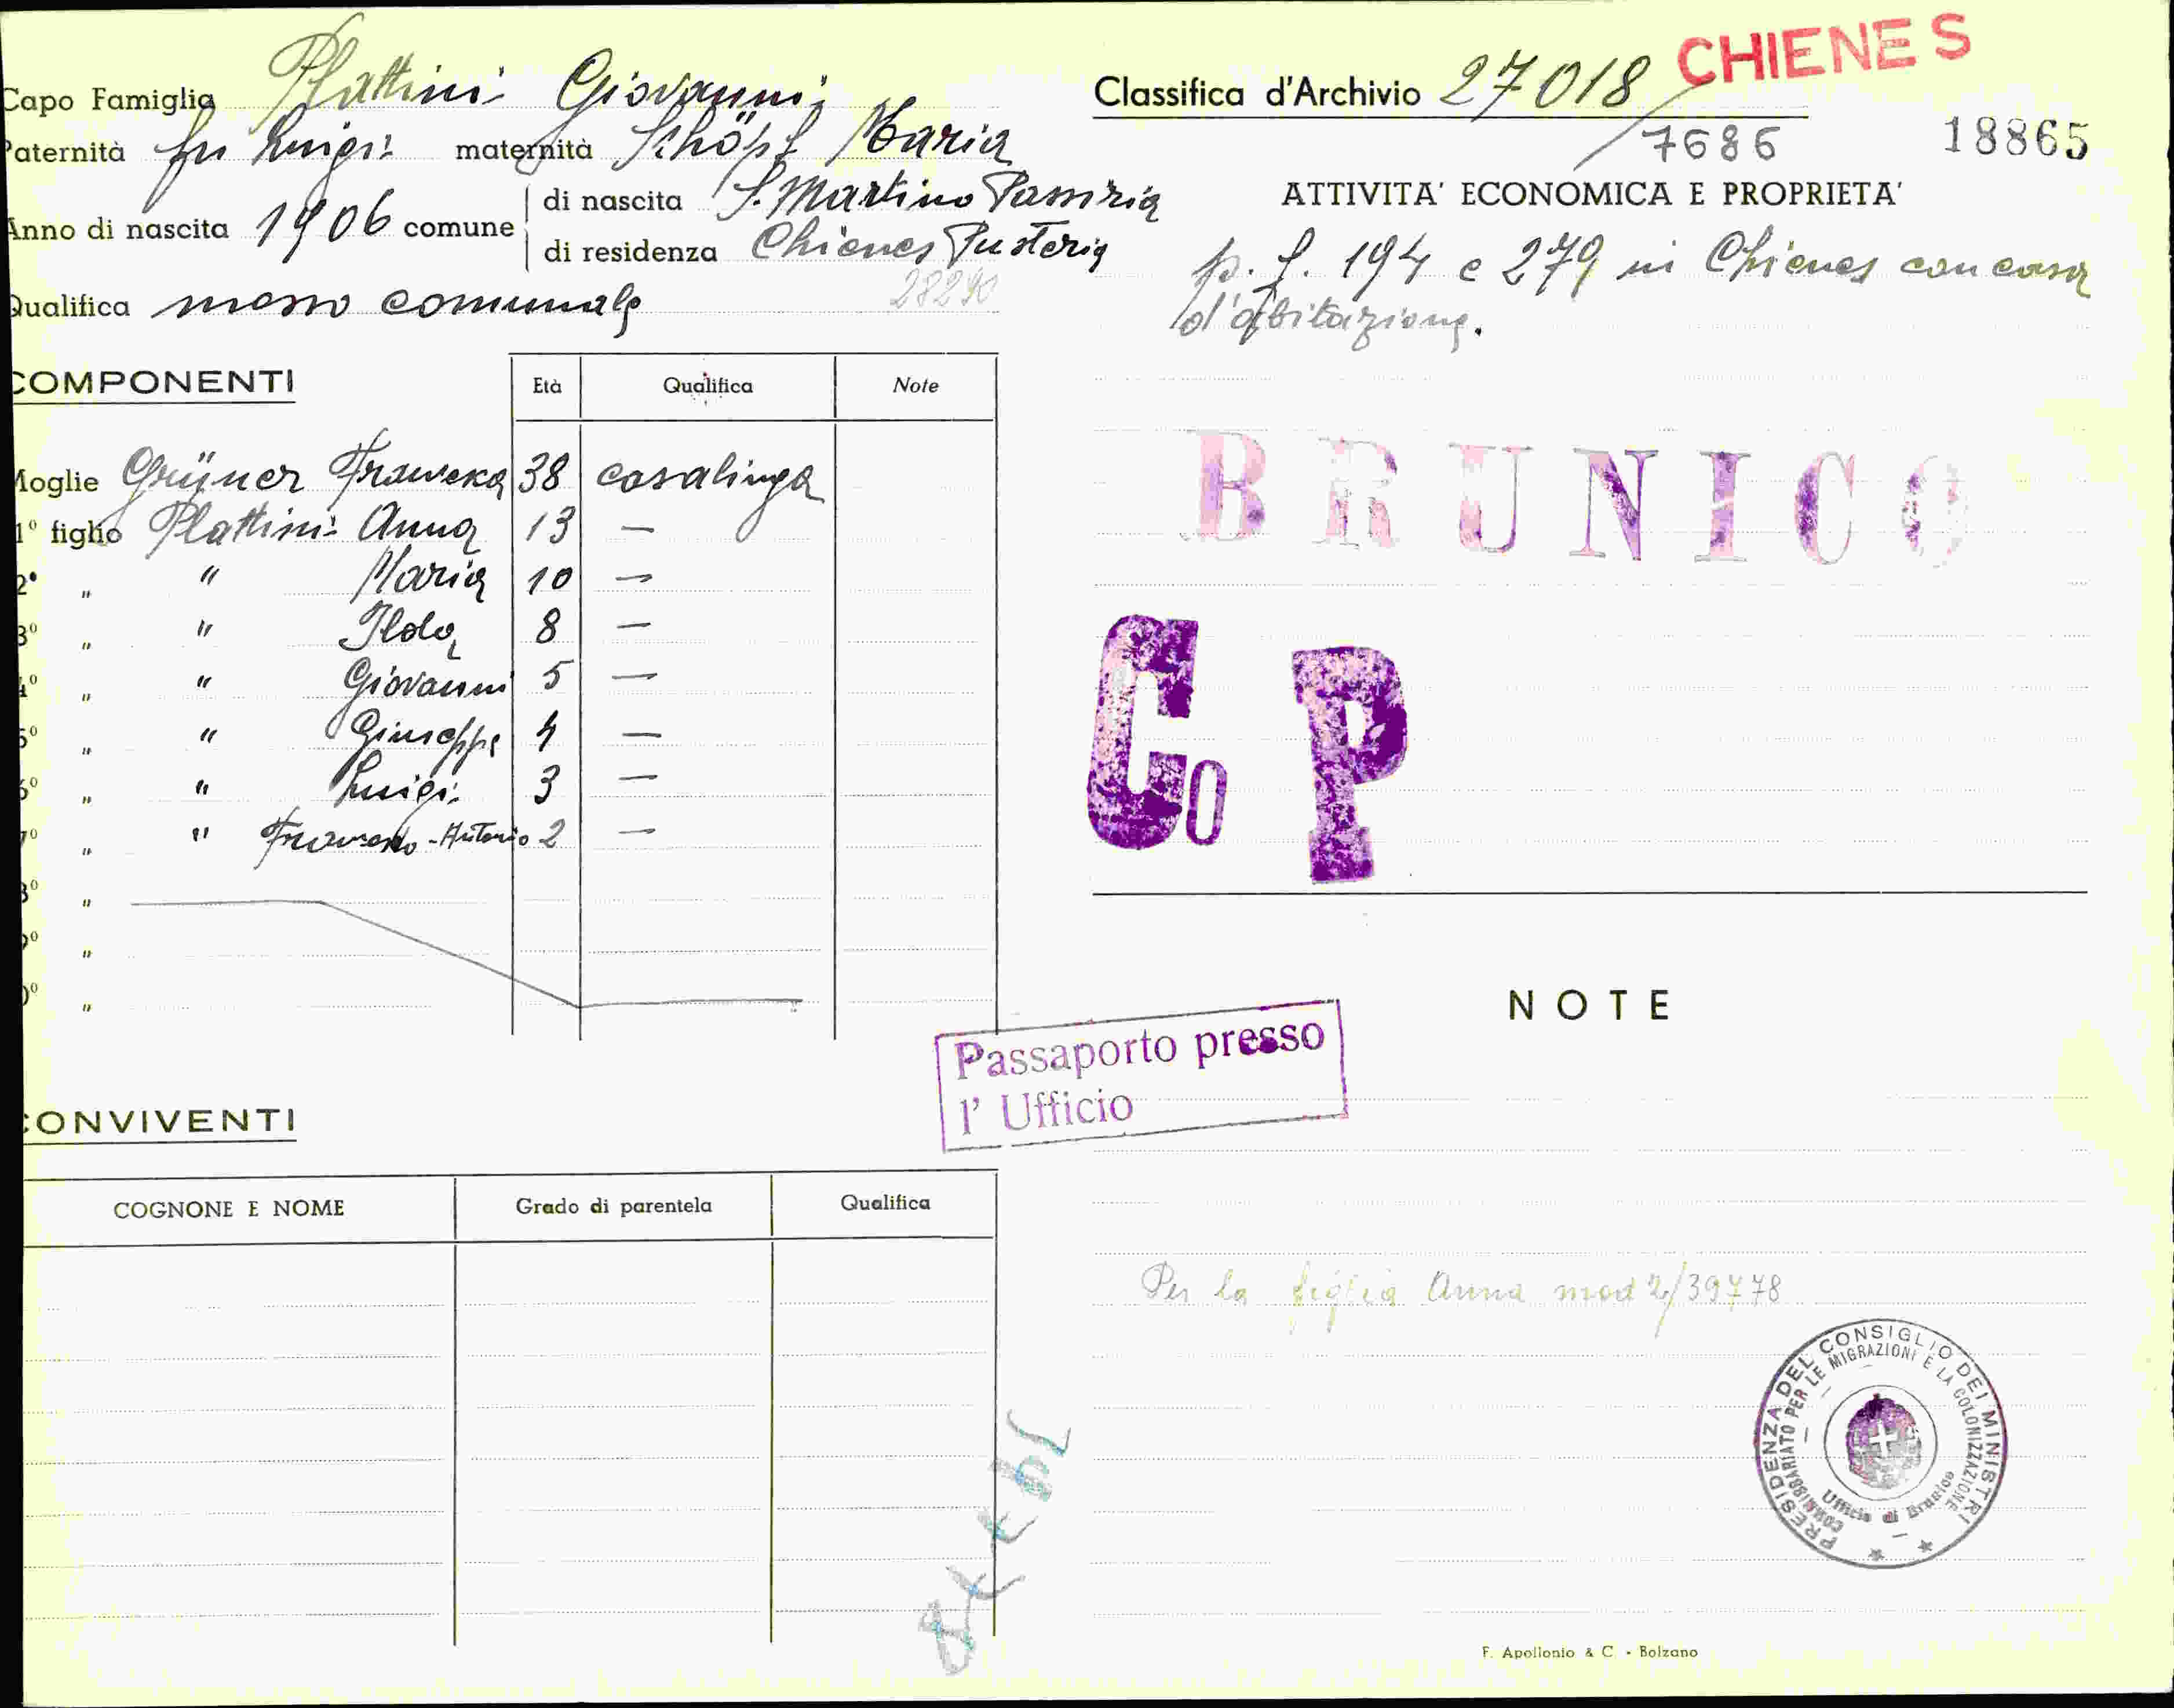 Capo Famiglia Plattini Giovanni
Paternità fu Luigi maternità Schöpf Maria
Anno di nascita 1906 comune di nascita S. Martino Passiria
di residenza Chienes Pusteria
28290
Qualifica messo comunale
COMPONENTI Età Qualifica Note
Moglie Grüner Francesca 38 casalinga
1º figlio Plattini Anna 13 —
2º " " Maria 10 —
3º " " Ilda 8 —
4º " " Giovanni 5 —
5º " " Giuseppe 4 —
6º " " Luigi 3 —
7º " " Francesco-Antonio 2 —
8º "
9º "
10º "
CONVIVENTI
COGNONE E NOME Grado di parentela Qualifica
Classifica d'Archivio 27018 CHIENES
/7686 18865
ATTIVITA' ECONOMICA E PROPRIETA'
p. f. 194 e 279 in Chienes con casa
d'abitazione.
BRUNICO
Co P
NOTE
Passaporto presso
l' Ufficio
Per la figlia Anna mod 2/39778
PRESIDENZA DEL CONSIGLIO DEI MINISTRI
COMMISSARIATO PER LE MIGRAZIONI E LA COLONIZZAZIONE
Ufficio di Brunico
F. Apollonio & C. - Bolzano